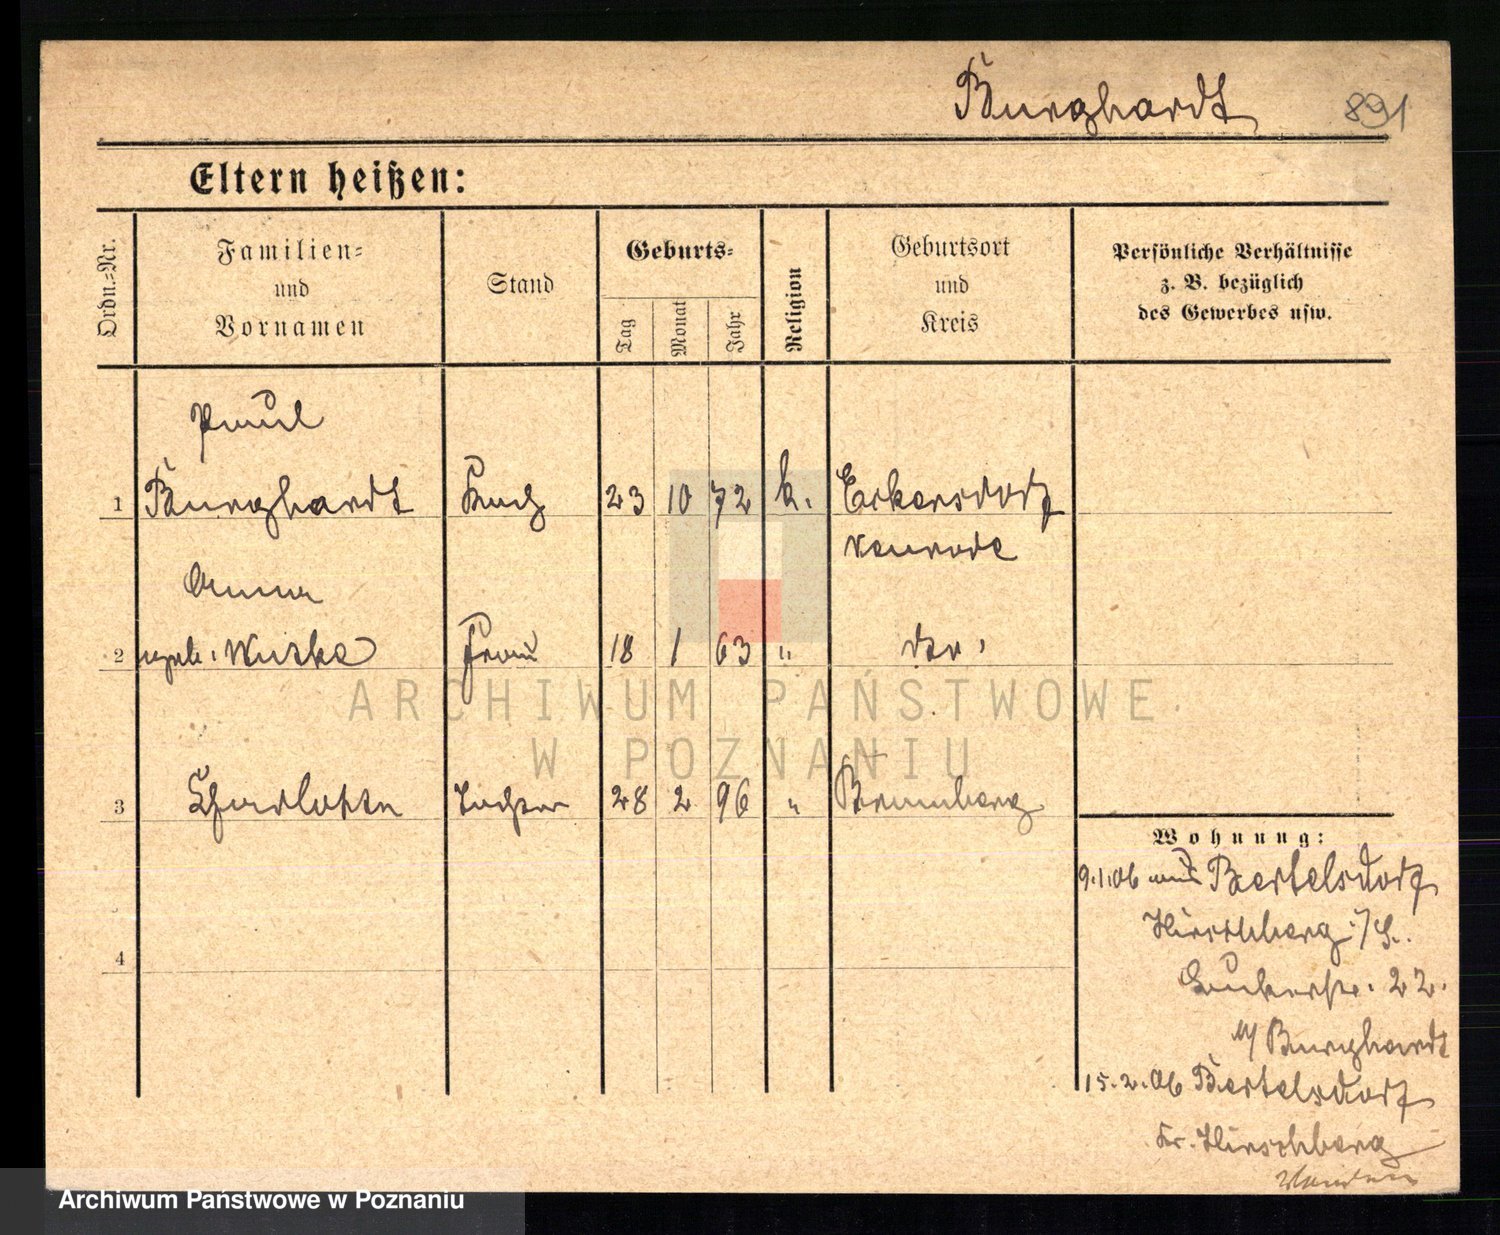 Burghardt 891
Eltern heißen:
Ordn.-Nr.
Familien-
und
Vornamen
Stand
Geburts-
Tag
Monat
Jahr
Religion
Geburtsort
und
Kreis
Persönliche Verhältnisse
z. B. bezüglich
des Gewerbes usw.
Paul
1 Burghardt 23 10 72 k. Eckersdorf
Neurode
Anna
2 geb. Wuske Frau 18 1 63 " do.
3 Charlotte Tochter 28 2 96 " Bromberg
4
Wohnung:
9.1.06 aus Bertelsdorf
Hirschberg i/S.
22.
b/ Burghardt
15.2.06 Bertelsdorf
Kr. Hirschberg
ARCHIWUM PAŃSTWOWE
W POZNANIU
Archiwum Państwowe w Poznaniu